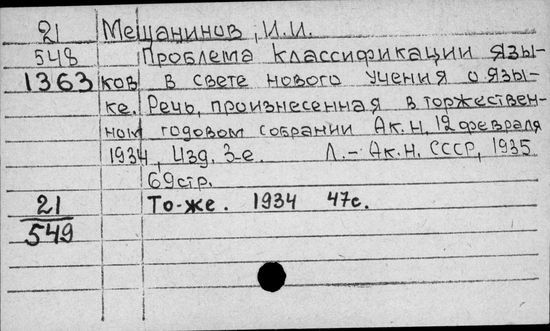 21 Мещанинов, И.И.
548 Проблема классификации язы-
1363 ков в свете нового учения о язы-
ке. Речь, произнесенная в торжествен-
ном годовом собрании Ак.Н. 12 февраля
1934, Изд. 3-е. Л.-Ак.Н. СССР, 1935
69стр.
21 То-же. 1934 47с.
549